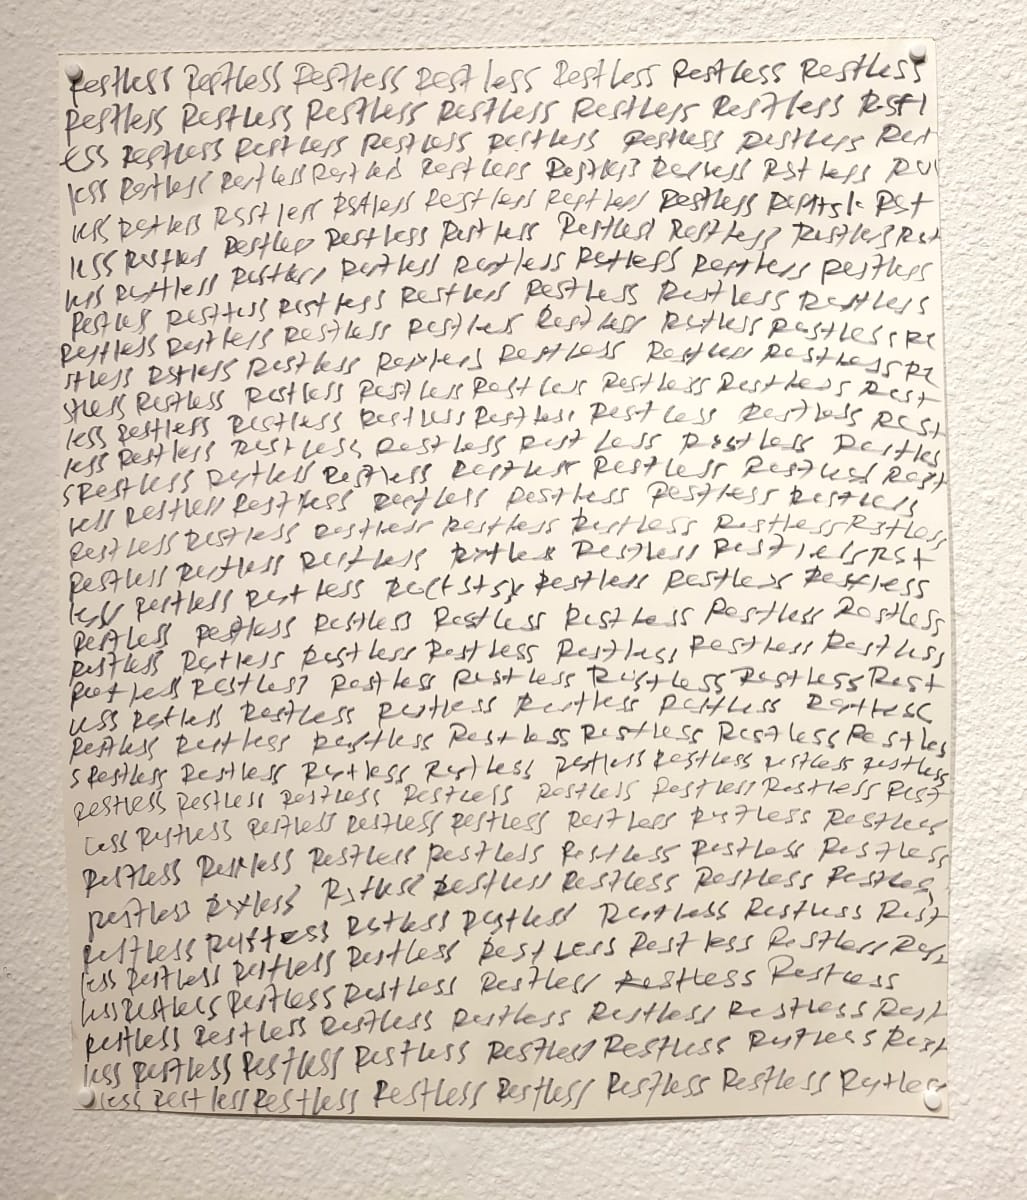 Restless Restless Restless Restless Restless Restless Restless
Restless Restless Restless Restless Restless Restless Restl
ess Restless Restless Restless Restless Restless Restless Rest
less Restless Restless Restless Restless Restless Restless Rst less
less Restless Rsst less Rstless Restless Restless Restless Rest
less Restless Restless Restless Restless Restless Restless Restless Rst
less Restless Restless Restless Restless Restless Restless Restless
Restless Restless Restless Restless Restless Restless Restless
Restless Restless Restless Restless Restless Restless Restless Re
stless Rstless Restless Restless Restless Restless Restless Re
stless Restless Restless Restless Restless Restless Restless Rest
less Restless Restless Restless Restless Restless Restless Rest
less Restless Restless Restless Rest less Restless Restles
s Restless Restless Restless Restless Restless Restless Rest
less Restless Restless Restless Restless Restless Restless
Restless Restless Restless Restless Restless Restless Rstless
Restless Restless Restless Restless Restless Restless Rst
less Restless Restless Restless Restless Restless
Restless Restless Restless Restless Restless Restless Restless
Restless Restless Restless Restless Restless Restless Restless
Restless Restless Restless Restless Restless Restless Rest
less Restless Restless Restless Restless Restless Restless
Restless Restless Restless Restless Restless Restless Restles
s Restless Restless Restless Restless Restless Restless Restless Restless
Restless Restless Restless Restless Restless Restless Restless Rest
less Restless Restless Restless Restless Restless Restless Restless
Restless Restless Restless Restless Restless Restless Restless
Restless Restless Rstless Restless Restless Restless Restless
Restless Restless Restless Restless Restless Restless Rest
less Restless Restless Restless Restless Restless Restless Res
less Restless Restless Restless Restless Restless Restless
Restless Restless Restless Restless Restless Restless Rest
less Restless Restless Restless Restless Restless Restless Rest
less Restless Restless Restless Restless Restless Restless Restless